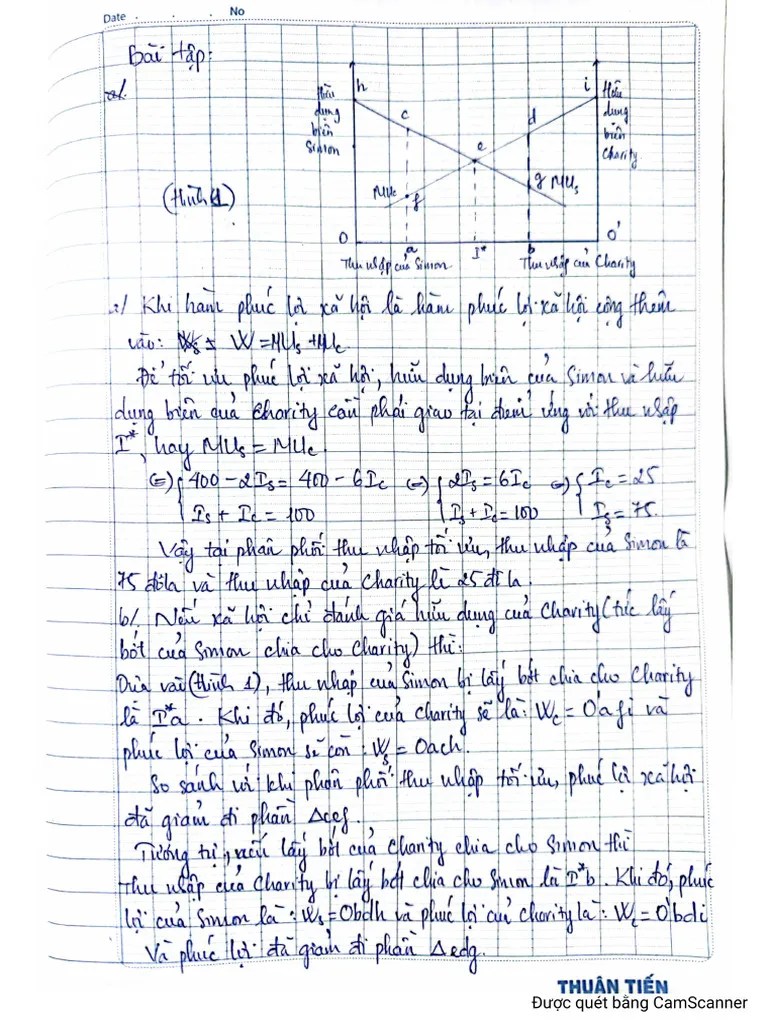 Date No
Bài tập:
a/.
h
i
Hữu
dụng
biên
Simon
Hữu
dụng
biên
Charity
c
d
e
MUc
f
g MUs
(Hình 1)
O
a
I*
b
O'
Thu nhập của Simon
Thu nhập của Charity
a/ Khi hàm phúc lợi xã hội là hàm phúc lợi xã hội cộng thêm
vào: W = MUs + MUc
Để tối ưu phúc lợi xã hội, hữu dụng biên của Simon và hữu
dụng biên của Charity cần phải giao tại điểm ứng với thu nhập
I*, hay MUs = MUc.
(=) { 400 - 2Is = 400 - 6Ic (=) { 2Is = 6Ic (=) { Ic = 25
Is + Ic = 100 Is + Ic = 100 Is = 75.
Vậy tại phân phối thu nhập tối ưu, thu nhập của Simon là
75 đôla và thu nhập của Charity là 25 đô la.
b/. Nếu xã hội chỉ đánh giá hữu dụng của Charity (tức lấy
bớt của Simon chia cho Charity) thì:
Dựa vào (Hình 1), thu nhập của Simon bị lấy bớt chia cho Charity
là I*a. Khi đó, phúc lợi của Charity sẽ là: Wc = O'afi và
phúc lợi của Simon sẽ còn: Ws = Oach.
So sánh với khi phân phối thu nhập tối ưu, phúc lợi xã hội
đã giảm đi phần Δcef.
Tương tự, nếu lấy bớt của Charity chia cho Simon thì
thu nhập của Charity bị lấy bớt chia cho Simon là I*b. Khi đó, phúc
lợi của Simon là: Ws = Obdh và phúc lợi của Charity là: Wc = O'bdi
Và phúc lợi đã giảm đi phần Δedg.
THUẬN TIẾN
Được quét bằng CamScanner